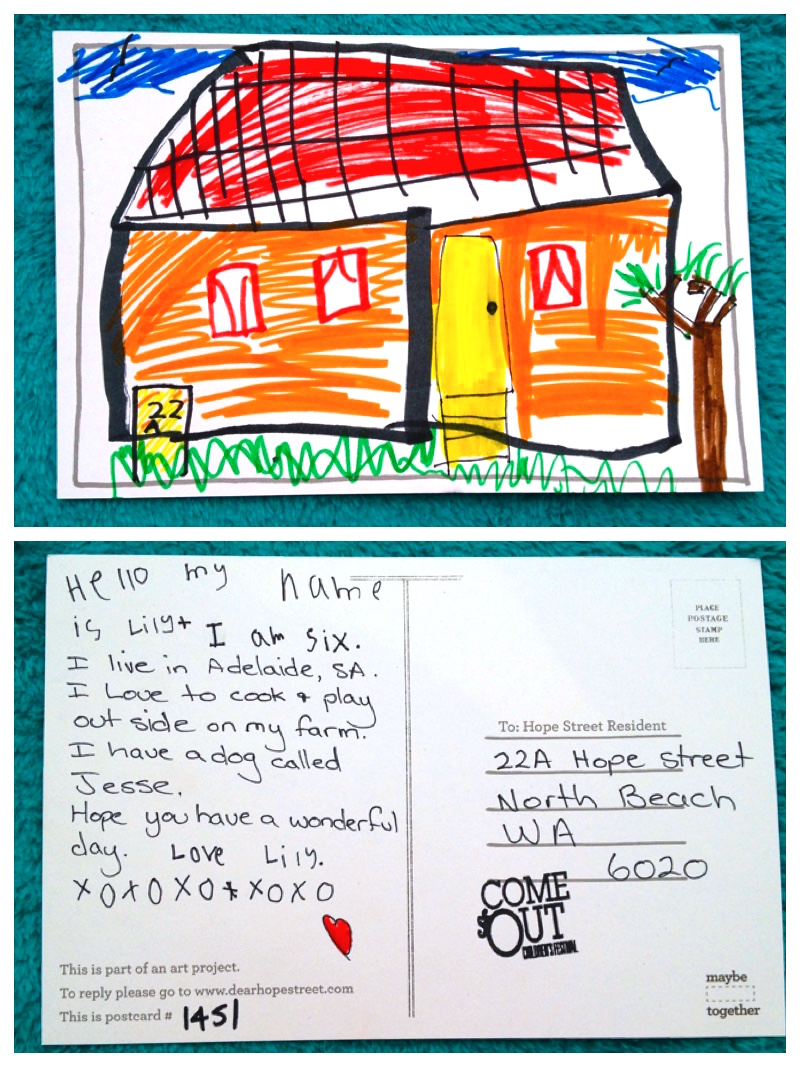 22
A
Hello my name
is Lily + I am six.
I live in Adelaide, SA.
I Love to cook + play
out side on my farm.
I have a dog called
Jesse.
Hope you have a wonderful
day. Love Lily.
XOXOXO+XOXO
This is part of an art project.
To reply please go to www.dearhopestreet.com
This is postcard # 1451
PLACE
POSTAGE
STAMP
HERE
To: Hope Street Resident
22A Hope street
North Beach
WA
6020
COME
OUT
CHILDREN'S FESTIVAL
maybe
together